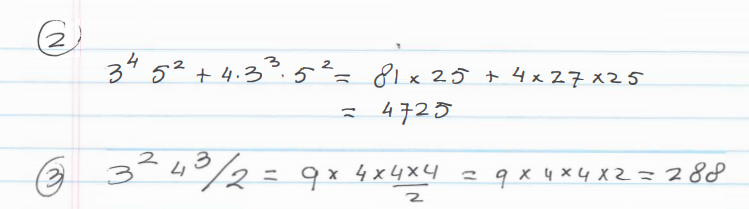 ②
3⁴ 5² + 4·3³·5² = 81 x 25 + 4 x 27 x 25
= 4725
③ 3² 4³/2 = 9 x 4 x 4 x 4/2 = 9 x 4 x 4 x 2 = 288